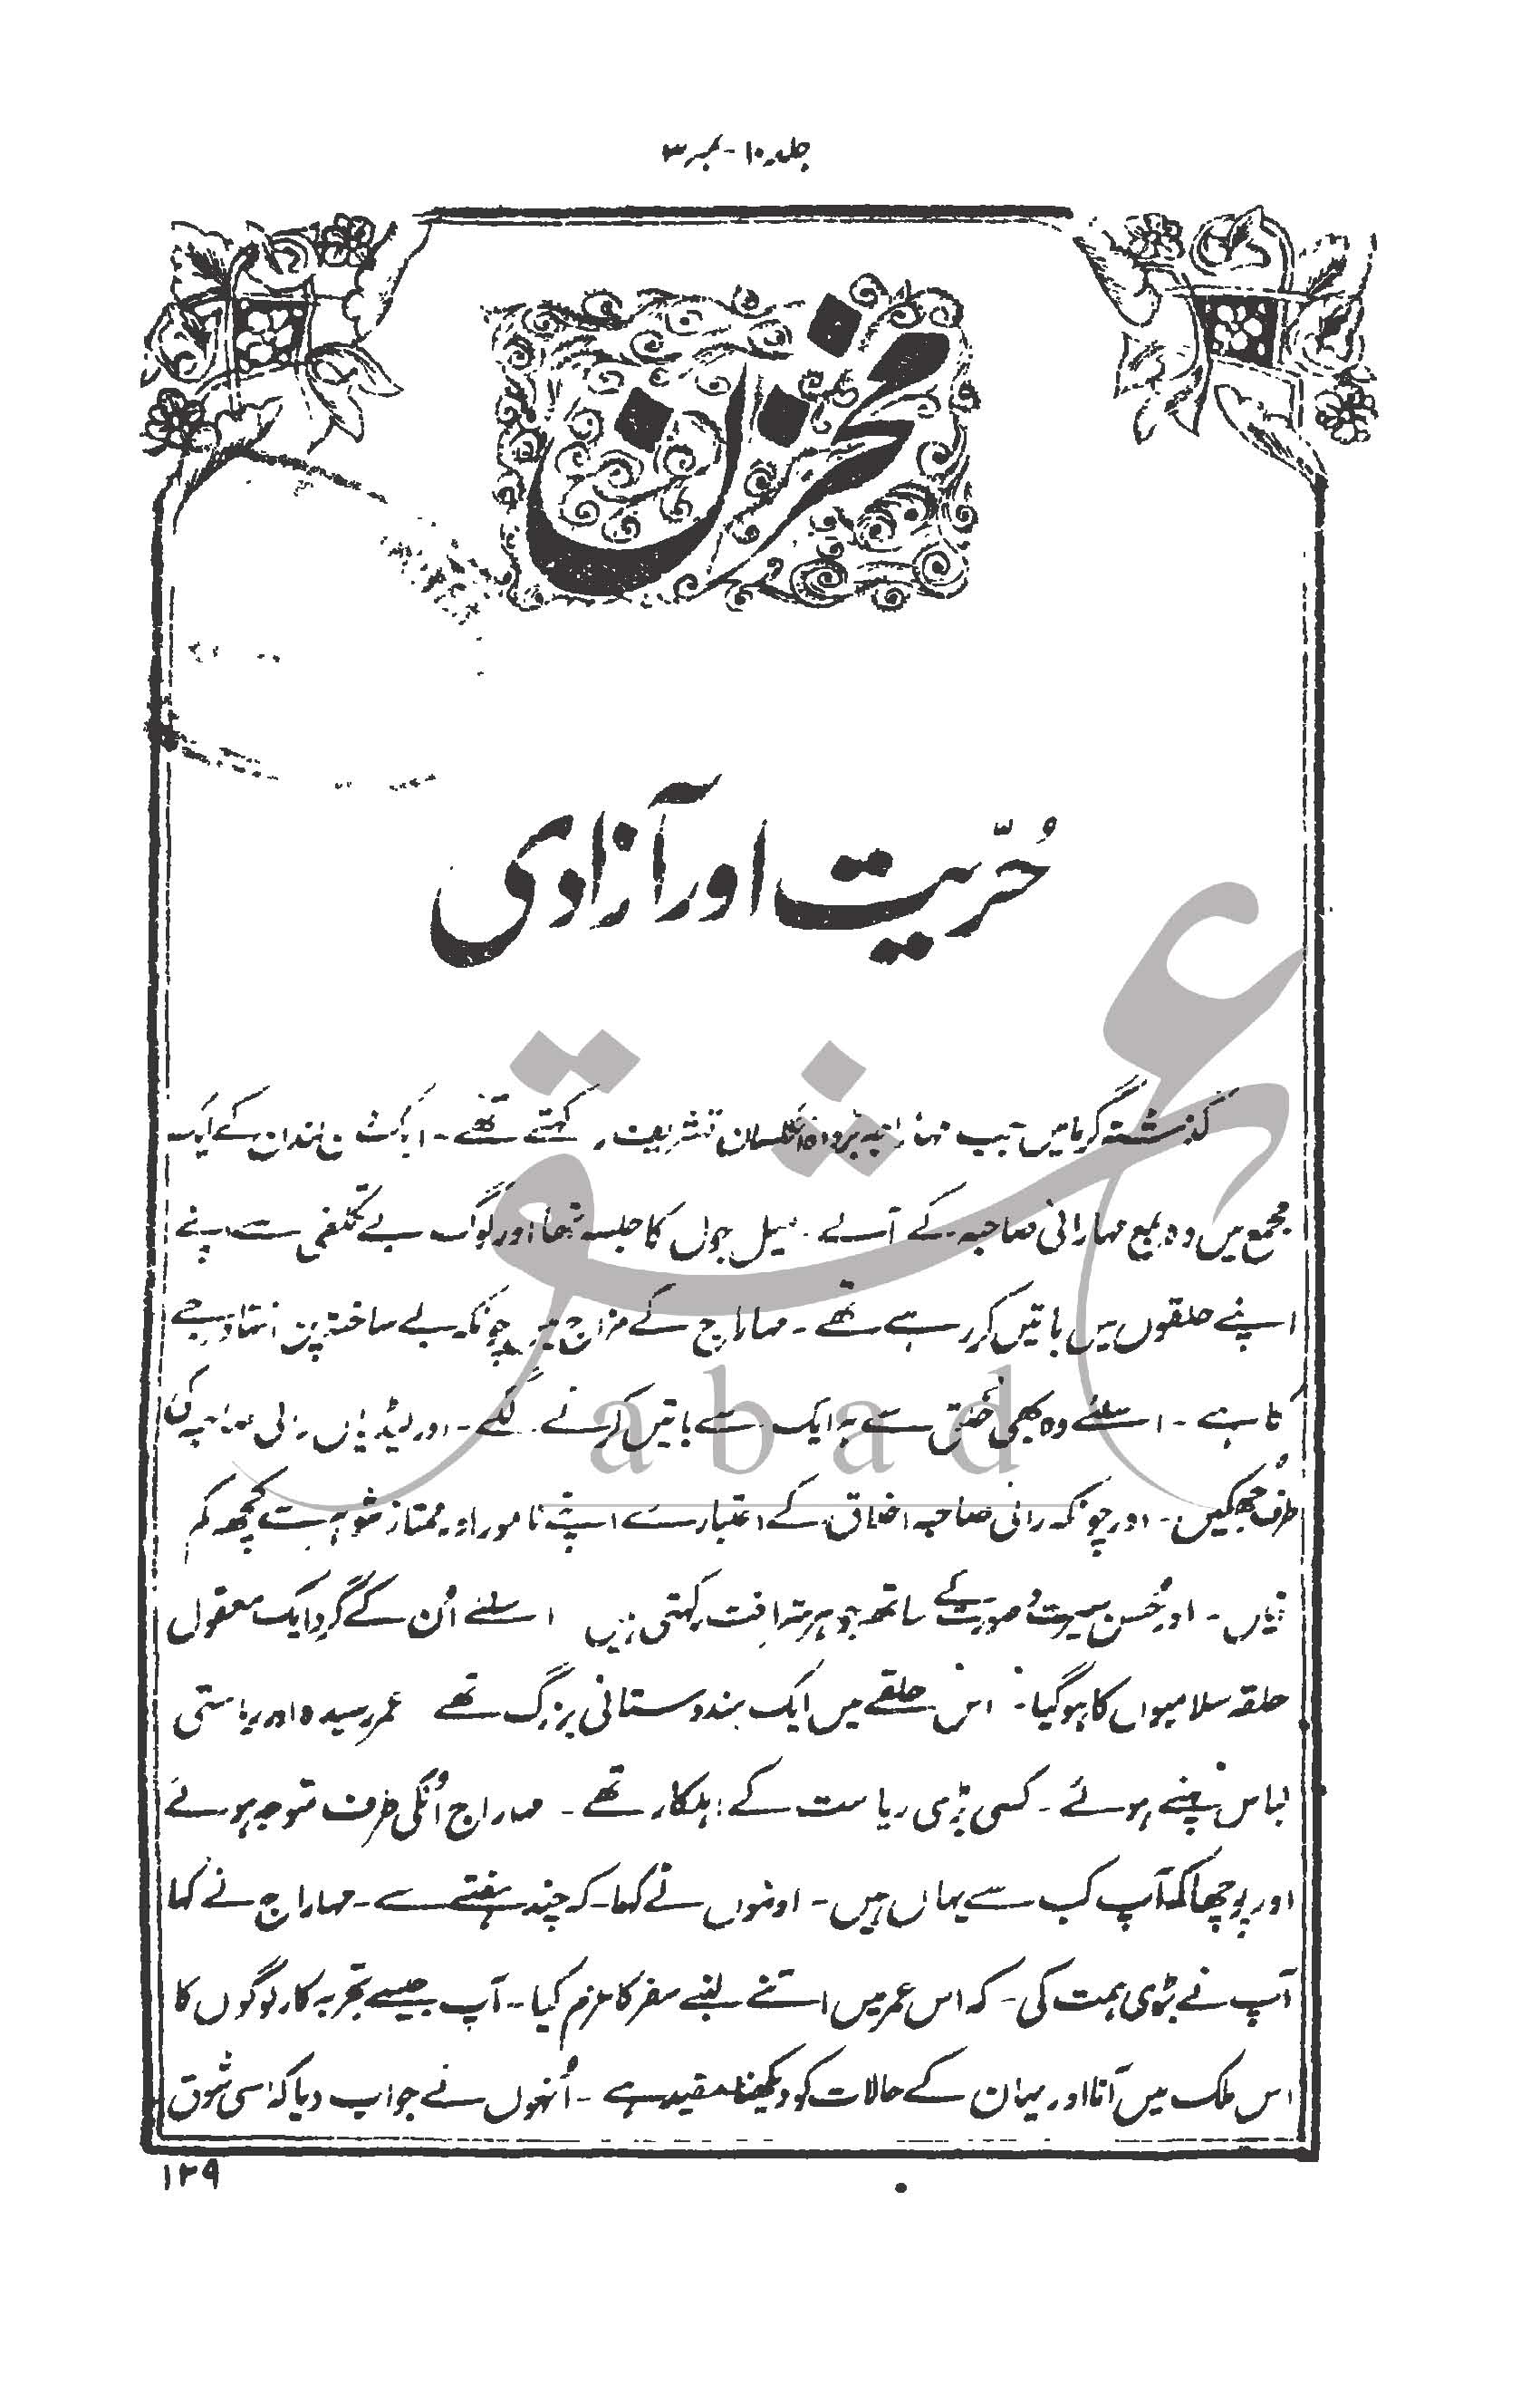 جلد ۱۰ - نمبر ۳
مخزن
حُرّیت اور آزادی
گذشتہ گرما میں جب مہاراجہ بڑودہ انگلستان تشریف رکھتے تھے - ایک شہ خاندان کے ایک
مجمع میں وہ مع مہارانی صاحبہ کے آئے - میل جول کا جلسہ تھا اور لوگ بے تکلفی سے اپنے
اپنے حلقوں میں باتیں کر رہے تھے - مہاراج کے مزاج میں چونکہ بے ساختہ پن انتہا درجے
کا ہے - اسلئے وہ بھی خلق سے ہر ایک سے باتیں کرنے لگے - اور لیڈیاں رانی صاحبہ کی
طرف جھکیں - اور چونکہ رانی صاحبہ اخلاق کے اعتبار سے اپنے نامور اور ممتاز شوہر سے کچھ کم
نہیں - اور حُسن سیرت و صورت کے ساتھ جوہر شرافت رکھتی ہیں اسلئے اُن کے گرد ایک معقول
حلقہ سلامیوں کا ہوگیا - اس حلقے میں ایک ہندوستانی بزرگ تھے عمر رسیدہ اور ریاستی
لباس پہنے ہوئے - کسی بڑی ریاست کے اہلکار تھے - مہاراج اُنکی طرف متوجہ ہوئے
اور پوچھا کہ آپ کب سے یہاں ہیں - اونہوں نے کہا - کہ چند ہفتے سے - مہاراج نے کہا
آپ نے بڑی ہمت کی - کہ اس عمر میں اتنے لنبے سفر کا عزم کیا - آپ جیسے تجربہ کار لوگوں کا
اس ملک میں آنا اور یہاں کے حالات کو دیکھنا مفید ہے - اُنہوں نے جواب دیا کہ اسی شوق
۱۲۹
عشق
abad